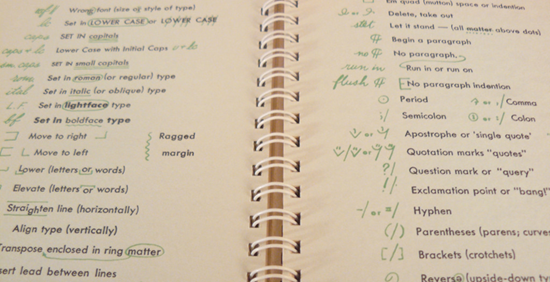 wf Wrong font (size or style of type)
lc Set in LOWER CASE or LOWER CASE
caps SET IN capitals
caps + lc Lower Case with Initial Caps
caps SET IN small capitals
rom Set in roman (or regular) type
ital Set in italic (or oblique) type
L.F. Set in lightface type
bf Set in boldface type
Move to right
Move to left
Lower (letters or words)
Elevate (letters or words)
Straighten line (horizontally)
Align type (vertically)
Transpose enclosed in ring matter
lead between lines
Ragged
margin
quad (mutton) space or indention
Delete, take out
stet Let it stand — (all matter above dots)
Begin a paragraph
no ¶ No paragraph.
run in Run in or run on
flush ¶ No paragraph indention
Period
or ,/ Comma
;/ Semicolon
or :/ Colon
or Apostrophe or 'single quote'
or Quotation marks "quotes"
?/ Question mark or "query"
!/ Exclamation point or "bang"
-/ or =/ Hyphen
(/) Parentheses (parens; curves
[/] Brackets (crotchets)
Reverse (upside-down